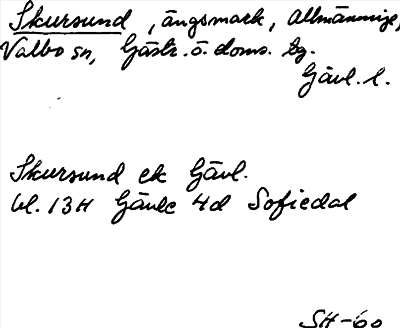 Skursund, ängsmark, Allmänninge,
Valbo sn, Gästr. ö. doms. tg.
Gävl. l.
Skursund ek Gävl.
bl. 13H Gävle 4d Sofiedal
SH-60